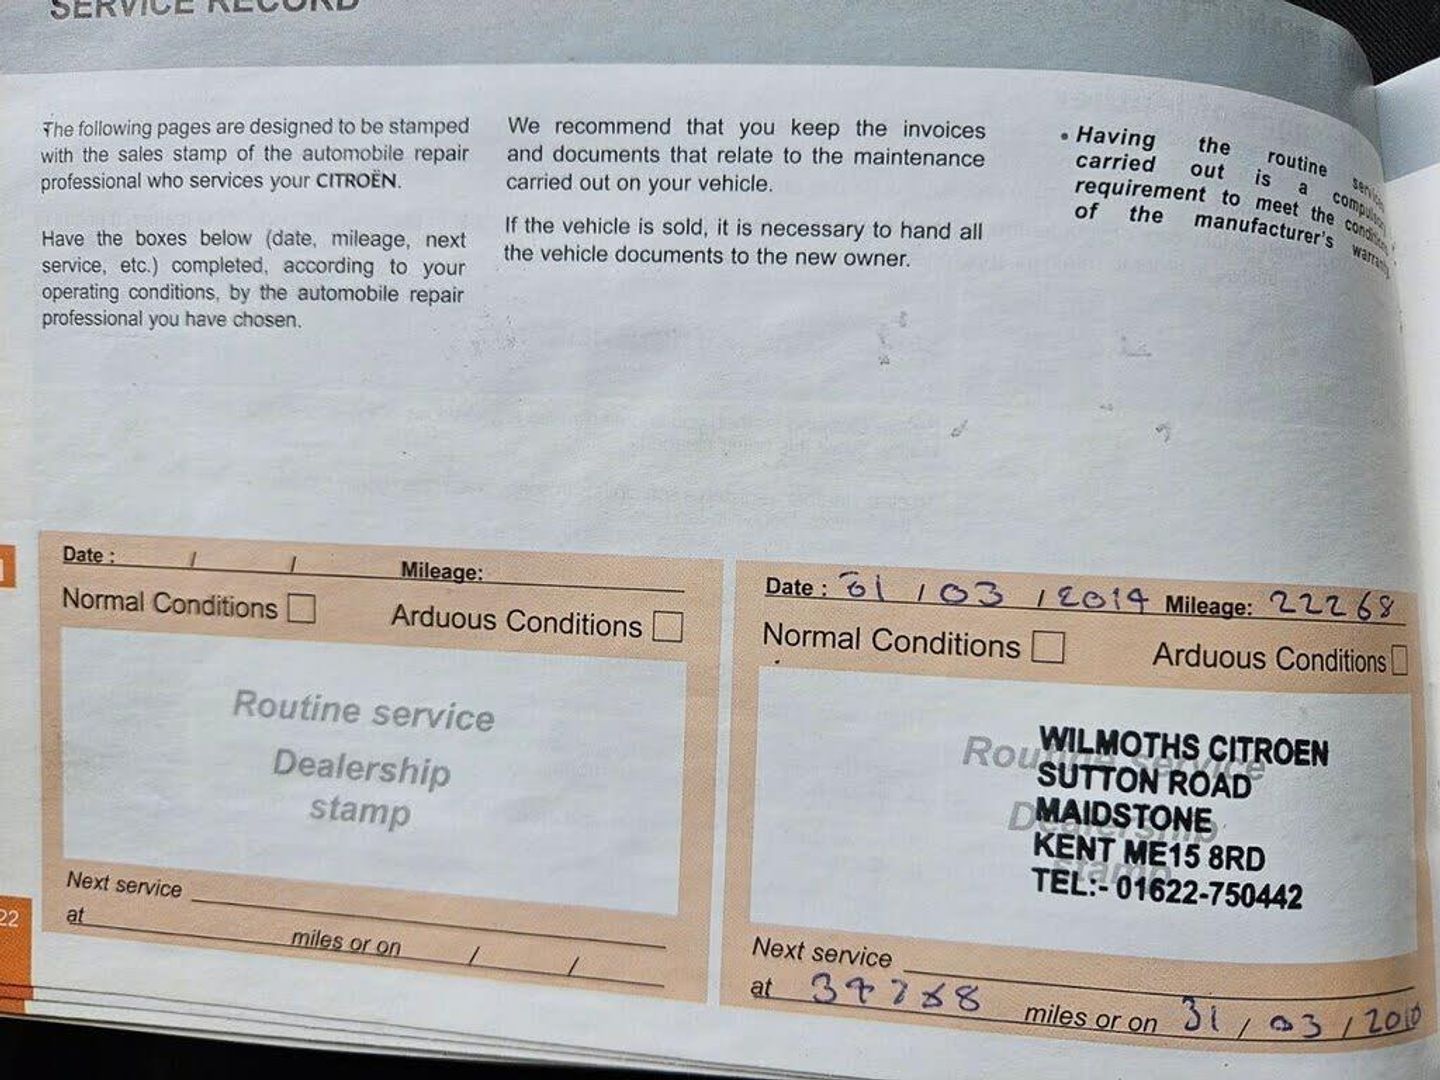 SERVICE RECORD
The following pages are designed to be stamped
with the sales stamp of the automobile repair
professional who services your CITROËN.
Have the boxes below (date, mileage, next
service, etc.) completed, according to your
operating conditions, by the automobile repair
professional you have chosen.
We recommend that you keep the invoices
and documents that relate to the maintenance
carried out on your vehicle.
If the vehicle is sold, it is necessary to hand all
the vehicle documents to the new owner.
• Having the routine service
carried out is a compulsory
requirement to meet the conditions
of the manufacturer's warranty.
Date : / / Mileage:
Normal Conditions Arduous Conditions
Routine service
Dealership
stamp
Next service
at miles or on / /
22
Date : / 03 / 2014 Mileage: 22268
Normal Conditions Arduous Conditions
Routine service
Dealership
stamp
WILMOTHS CITROEN
SUTTON ROAD
MAIDSTONE
KENT ME15 8RD
TEL:- 01622-750442
Next service
at miles or on 31 / 03 /